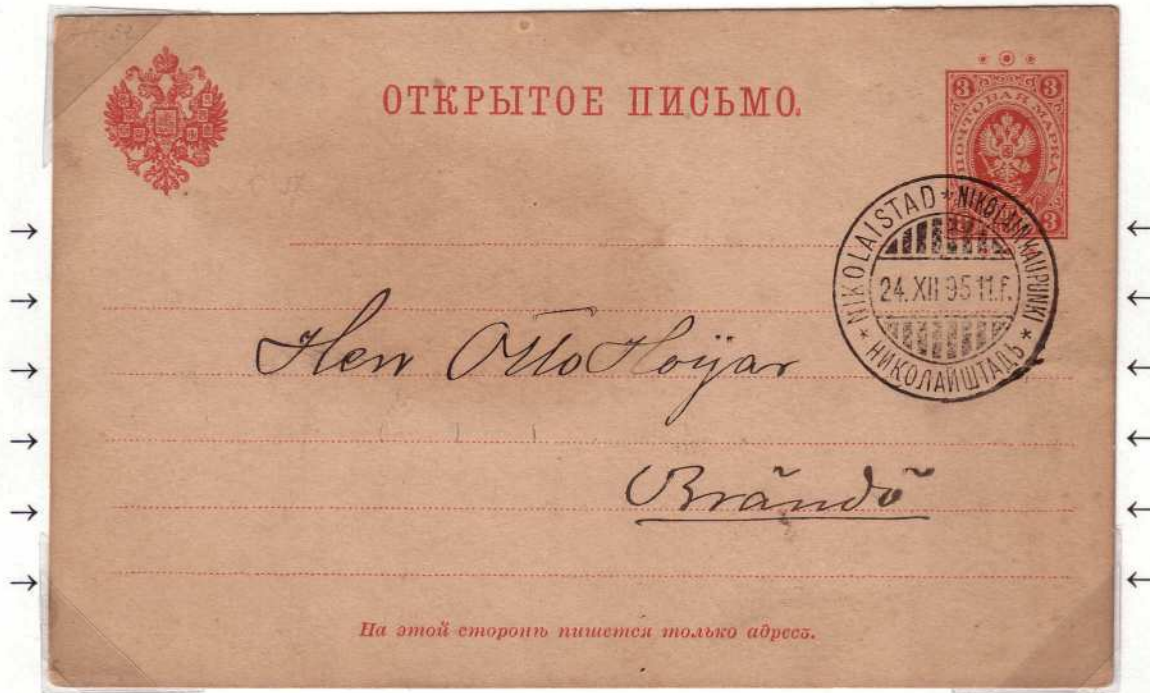 ОТКРЫТОЕ ПИСЬМО.
3 3
ПОЧТОВАЯ МАРКА
3
* NIKOLAISTAD * NIKOLAINKAUPUNKI * НИКОЛАЙШТАДЪ
24. XII 95 11.f.
Herr Otto Hoijar
Brändö
На этой сторонѣ пишется только адресъ.